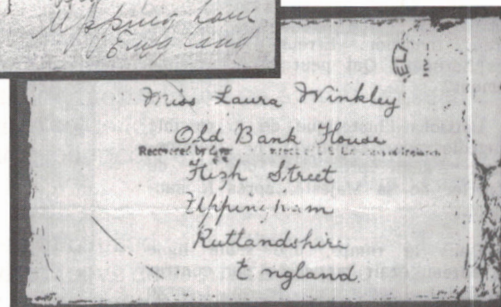 Uppingham
England
Miss Laura Winkley
Old Bank House
Recovered by
High Street
Uppingham
Rutlandshire
England.